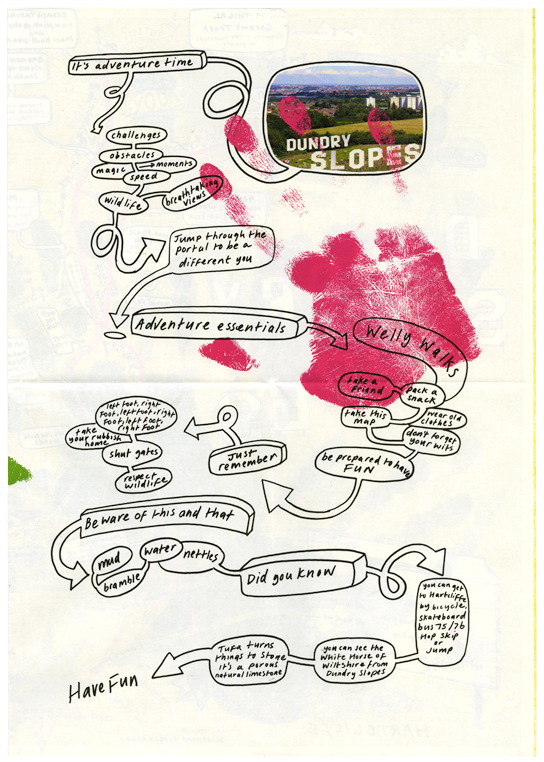 It's adventure time
DUNDRY
SLOPES
challenges
obstacles
magic
moments
speed
wildlife
breathtaking
views
Jump through the
portal to be a
different you
Adventure essentials
Welly Walks
take a
friend
pack a
snack
take this
map
wear old
clothes
don't forget
your wits
be prepared to have
FUN
Just
remember
left foot, right
foot, left foot, right
foot, left foot,
right foot
take
your rubbish
home
shut gates
respect
wildlife
Beware of this and that
mud
water
nettles
bramble
Did you know
you can get
to Hartcliffe
by bicycle,
skateboard
bus 75/76
Hop Skip
or
Jump
you can see the
White Horse of
Wiltshire from
Dundry Slopes
Tufa turns
things to stone
it's a porous
natural limestone
Have Fun